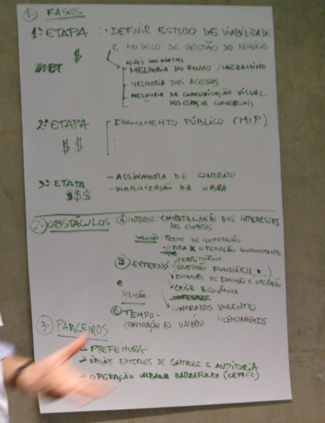 1- FASES
1ª ETAPA : - DEFINIR ESTUDO DE VIABILIDADE
$ E MODELO DE GESTÃO DO NEGÓCIO
- MELHORIA DO FLUXO /
- MELHORIA DOS ACESSOS
- MELHORIA NA COMUNICAÇÃO VISUAL
DOS ESPAÇOS COMERCIAIS
2ª ETAPA - CHAMAMENTO PÚBLICO (MIP)
$$
3ª ETAPA - ASSINATURA DE CONTRATO
$$$ - VIABILIZAÇÃO DA OBRA
2- OBSTÁCULOS A INTERNO: COMPATIBILIZAÇÃO DOS INTERESSES
DAS EMPRESAS
SOLUÇÃO: TERMO DE COOPERAÇÃO
- OBRA X OPERAÇÃO
B EXTERNO: - TERRITÓRIO
- QUESTÃO FUNDIÁRIA
OPERAÇÃO
- CRISE ECONÔMICA
SOLUÇÃO
CONTRATOS VIGENTES
C TEMPO - LICENCIAMENTOS
3- PARCEIROS
- PREFEITURA
- ÓRGÃOS EXTERNOS DE CONTROLE E AUDITORIA
- OPERAÇÃO URBANA